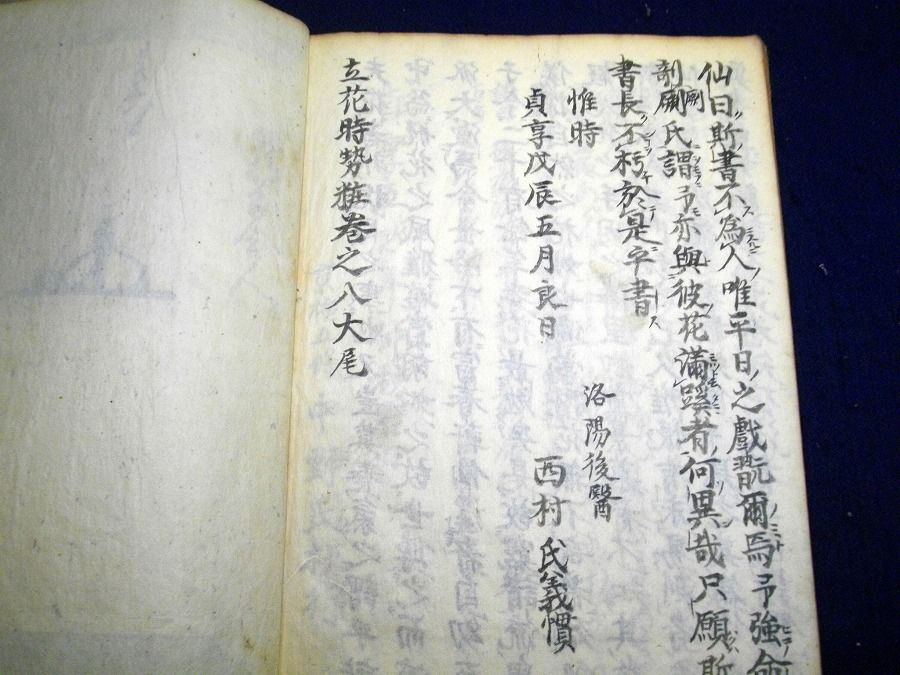 仙曰斯書不為人唯平日之戲翫爾焉予強命
剞劂氏謂予亦與彼花滿蹊者何異哉只願斯
書長不朽於是乎書
惟時
洛陽後醫
貞享戊辰五月良日 西村氏義慣
立花時勢粧卷之八大尾